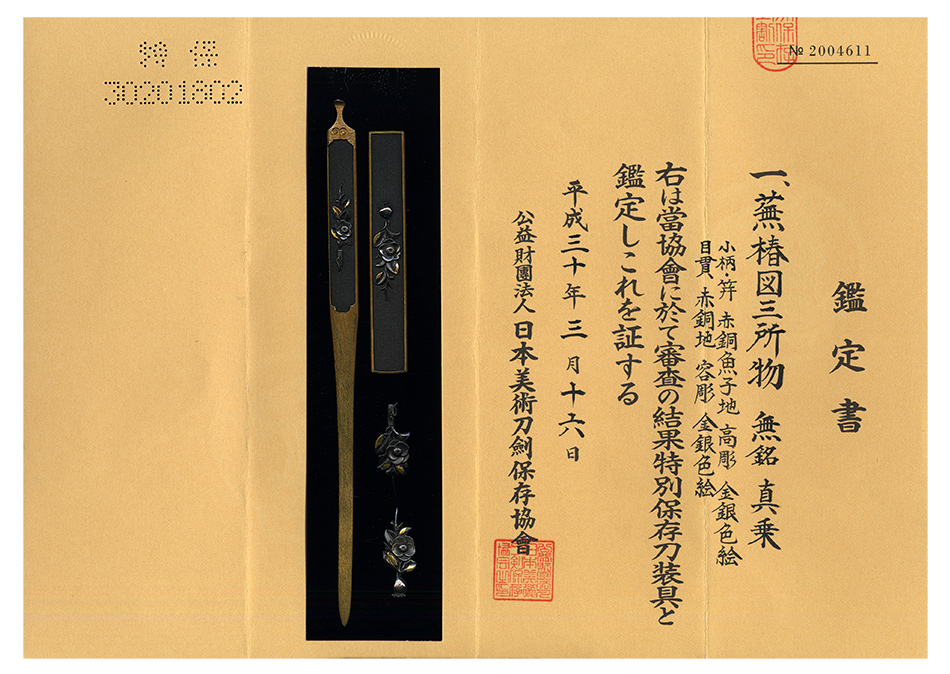 № 2004611
鑑定書
一、蕪椿図三所物 無銘 真乗
小柄・笄 赤銅魚子地 高彫 金銀色絵
目貫、赤銅地 容彫 金銀色絵
右は當協會に於て審査の結果特別保存刀装具と
鑑定しこれを証する
平成三十年三月十六日
公益財團法人 日本美術刀剣保存協會
特保
30201802